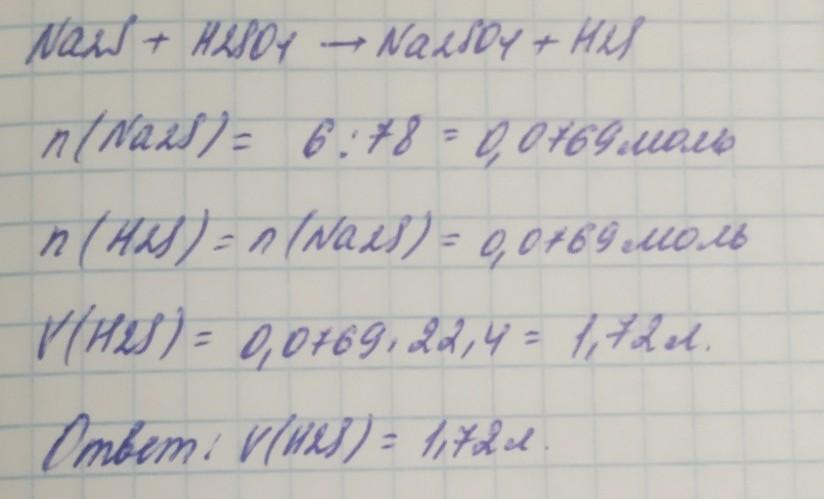 Na2S + H2SO4 → Na2SO4 + H2S
n(Na2S) = 6 : 78 = 0,0769 моль
n(H2S) = n(Na2S) = 0,0769 моль
V(H2S) = 0,0769 · 22,4 = 1,72 л.
Ответ: V(H2S) = 1,72 л.